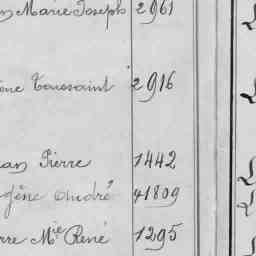 Marie Joseph 2961
Toussaint 2916
Pierre 1442
André 41809
Mie René 1295